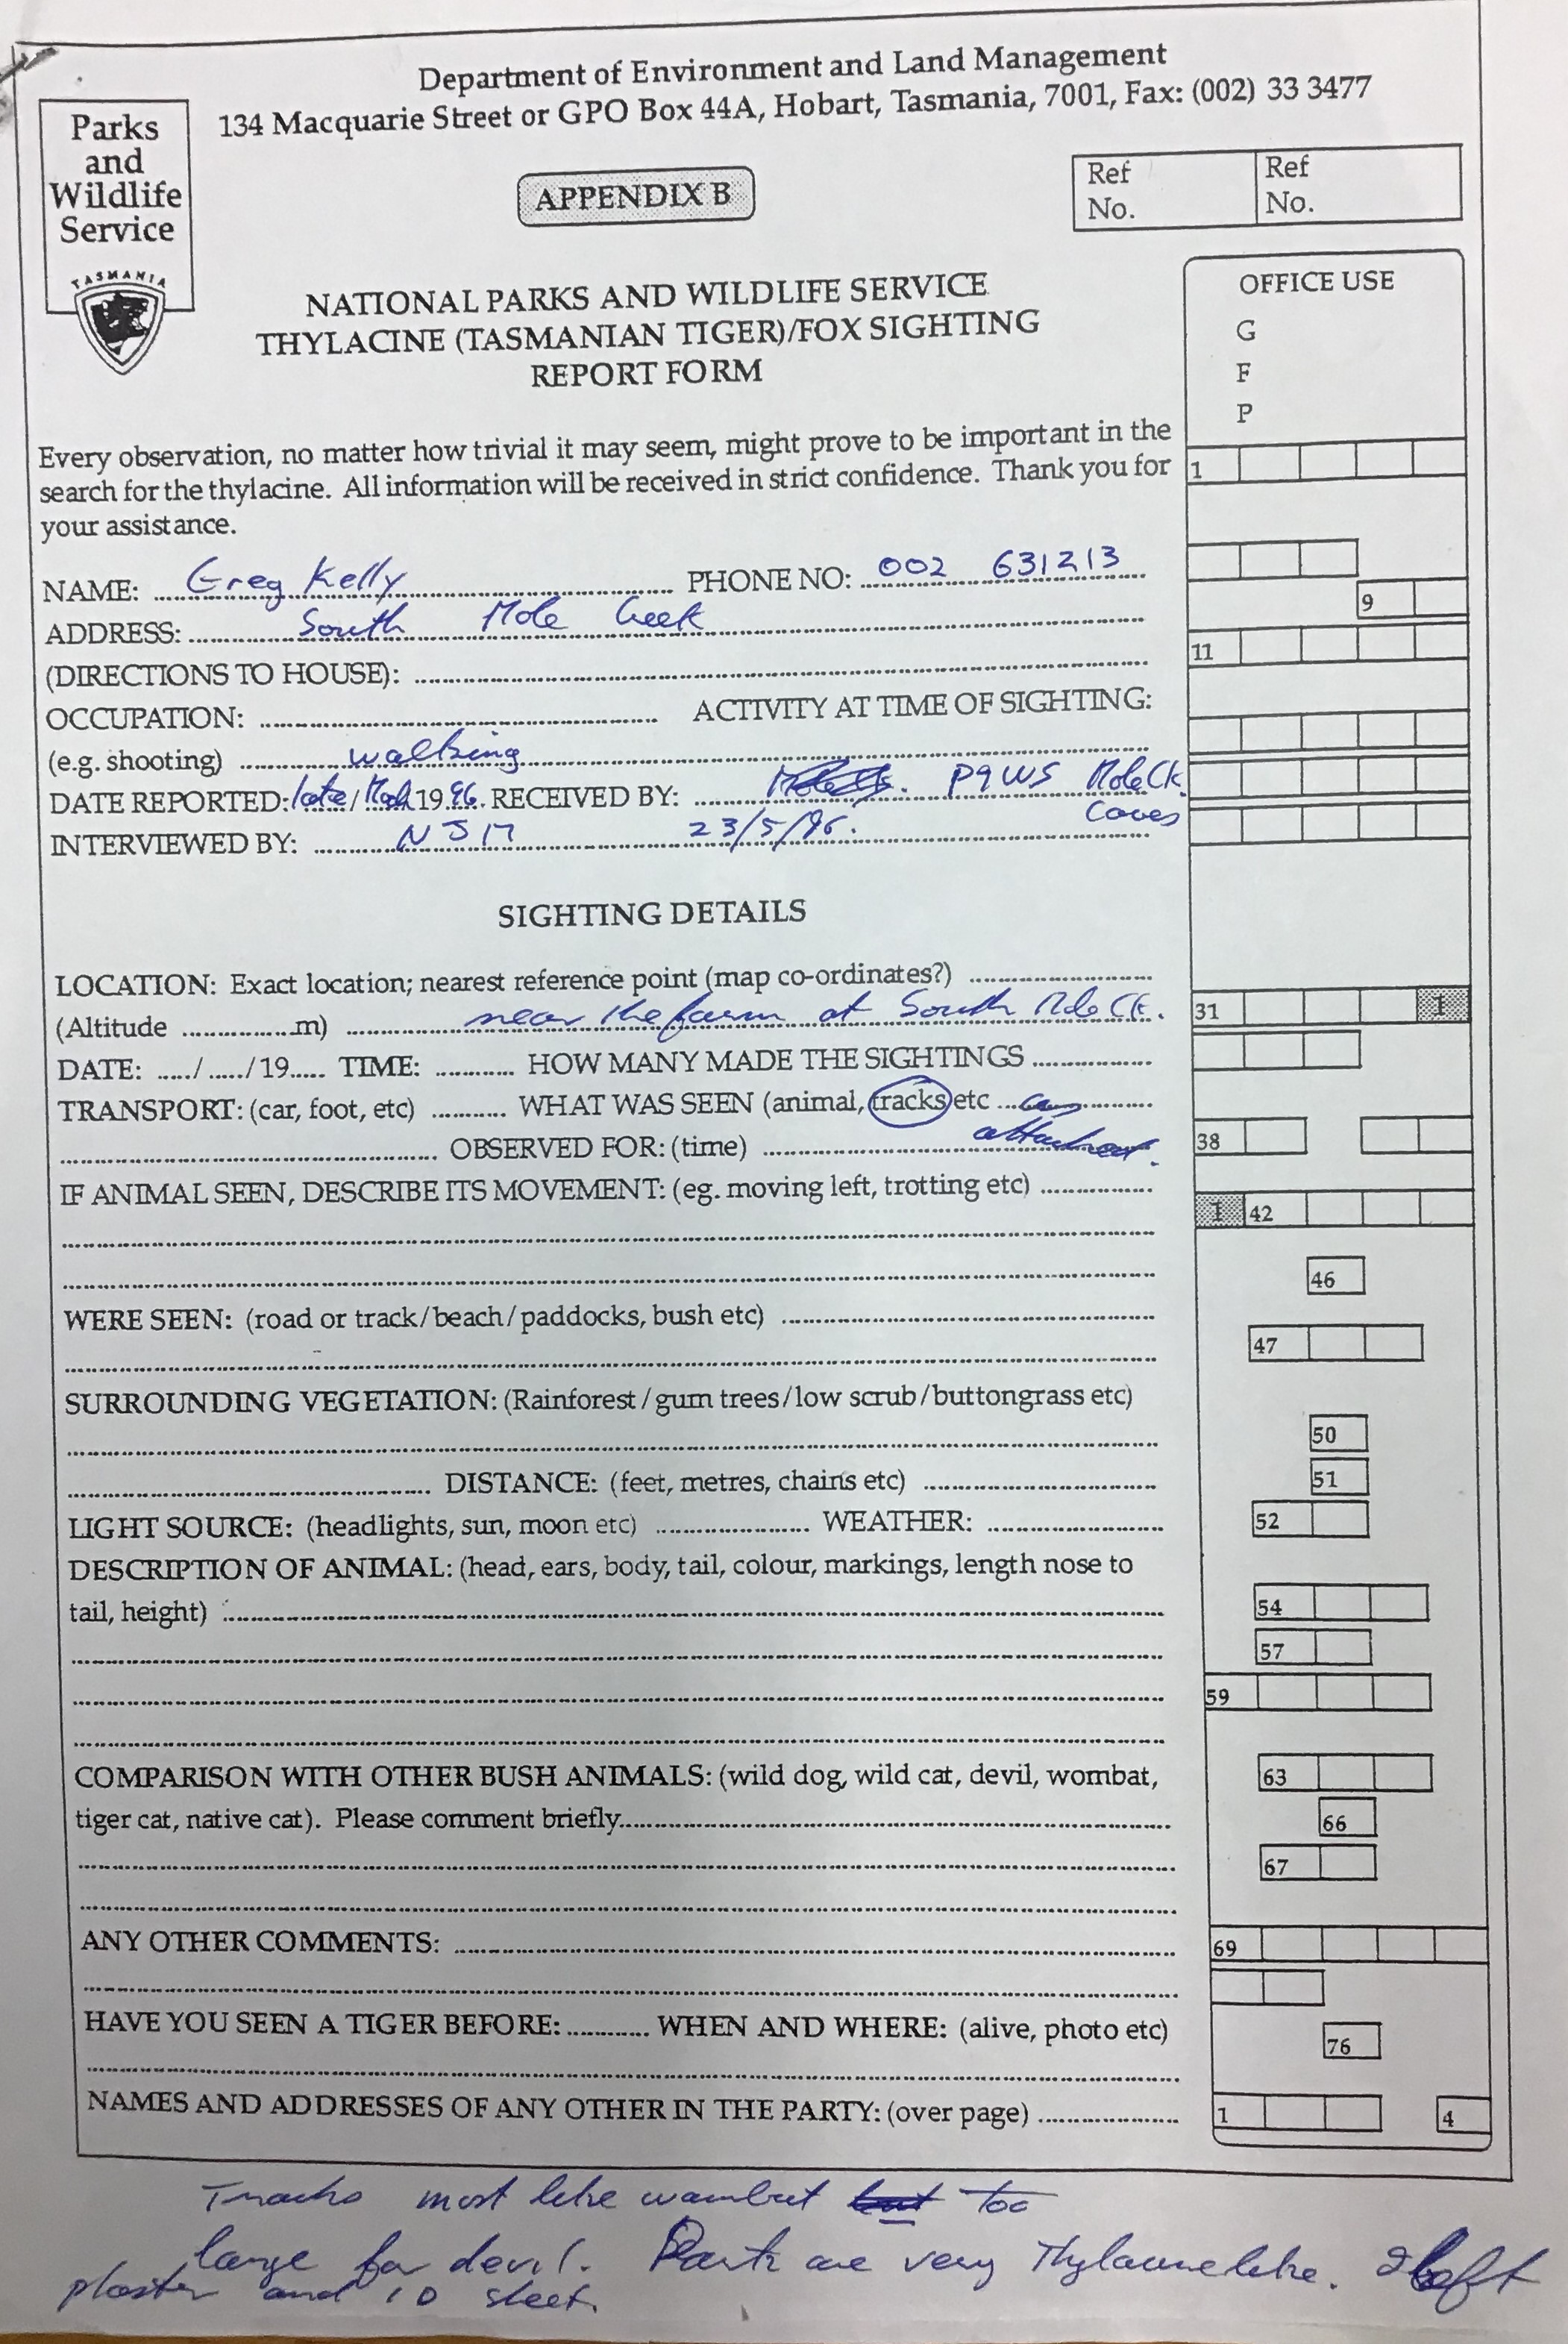 Department of Environment and Land Management
134 Macquarie Street or GPO Box 44A, Hobart, Tasmania, 7001, Fax: (002) 33 3477
Parks
and
Wildlife
Service
TASMANIA
APPENDIX B
Ref No.
Ref No.
NATIONAL PARKS AND WILDLIFE SERVICE
THYLACINE (TASMANIAN TIGER)/FOX SIGHTING
REPORT FORM
OFFICE USE
G
F
P
Every observation, no matter how trivial it may seem, might prove to be important in the
search for the thylacine. All information will be received in strict confidence. Thank you for
your assistance.
1
NAME: Greg Kelly PHONE NO: 002 631213
9
ADDRESS: South Mole Creek
11
(DIRECTIONS TO HOUSE):
OCCUPATION: ACTIVITY AT TIME OF SIGHTING:
(e.g. shooting) walking
DATE REPORTED: late/ 1996. RECEIVED BY: P&WS Mole Ck.
Caves
INTERVIEWED BY: NJM 23/5/96.
SIGHTING DETAILS
LOCATION: Exact location; nearest reference point (map co-ordinates?)
(Altitude m) near the farm at South Mole Ck.
31 I
DATE: / /19 TIME: HOW MANY MADE THE SIGHTINGS
TRANSPORT: (car, foot, etc) WHAT WAS SEEN (animal, tracks etc
attached.
OBSERVED FOR: (time)
38
IF ANIMAL SEEN, DESCRIBE ITS MOVEMENT: (eg. moving left, trotting etc)
I 42
46
WERE SEEN: (road or track/beach/paddocks, bush etc)
47
SURROUNDING VEGETATION: (Rainforest/gum trees/low scrub/buttongrass etc)
50
DISTANCE: (feet, metres, chains etc)
51
LIGHT SOURCE: (headlights, sun, moon etc) WEATHER:
52
DESCRIPTION OF ANIMAL: (head, ears, body, tail, colour, markings, length nose to
tail, height)
54
57
59
COMPARISON WITH OTHER BUSH ANIMALS: (wild dog, wild cat, devil, wombat,
63
tiger cat, native cat). Please comment briefly
66
67
ANY OTHER COMMENTS:
69
HAVE YOU SEEN A TIGER BEFORE: WHEN AND WHERE: (alive, photo etc)
76
NAMES AND ADDRESSES OF ANY OTHER IN THE PARTY: (over page)
1 4
Tracks most like wombat but too
large for devil. are very Thylacine like. I left
plaster and ID sheet.